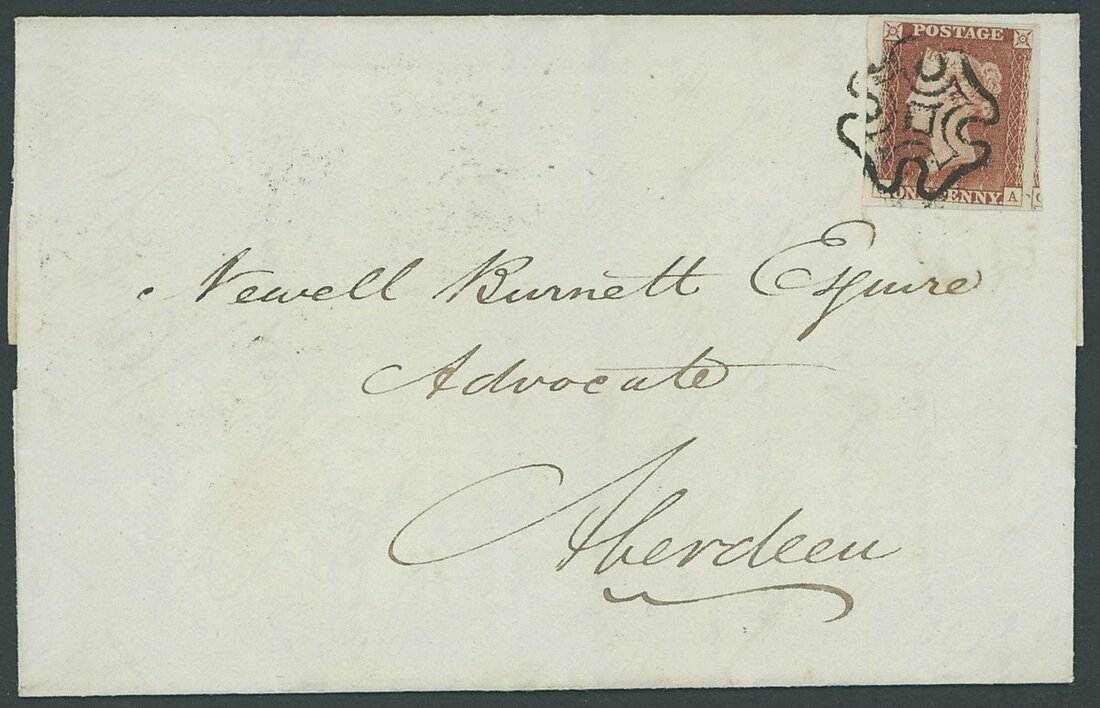 POSTAGE
ONE PENNY.
A
Newell Burnett Esquire
Advocate
Aberdeen